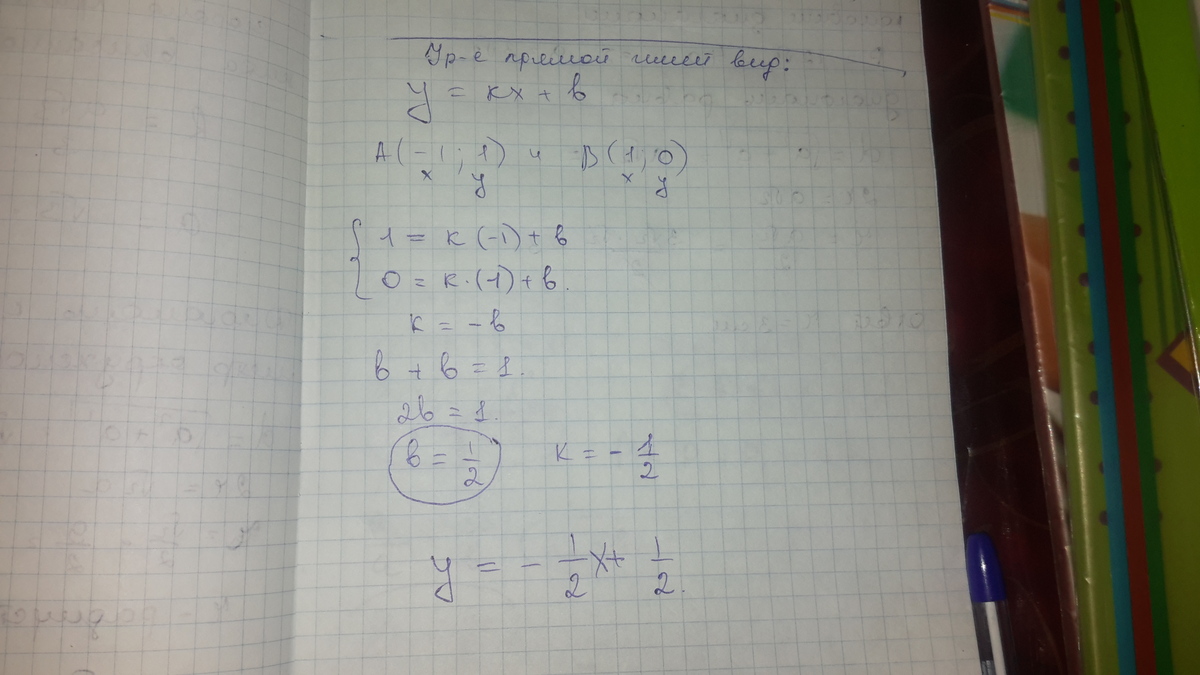 Ур-е прямой имеет вид:
y = kx + b
A(-1; 1) и B(1; 0)
x y x y
1 = k(-1) + b
0 = k·(-1) + b.
k = -b
b + b = 1.
2b = 1.
b = 1/2 k = - 1/2
y = - 1/2 x + 1/2.